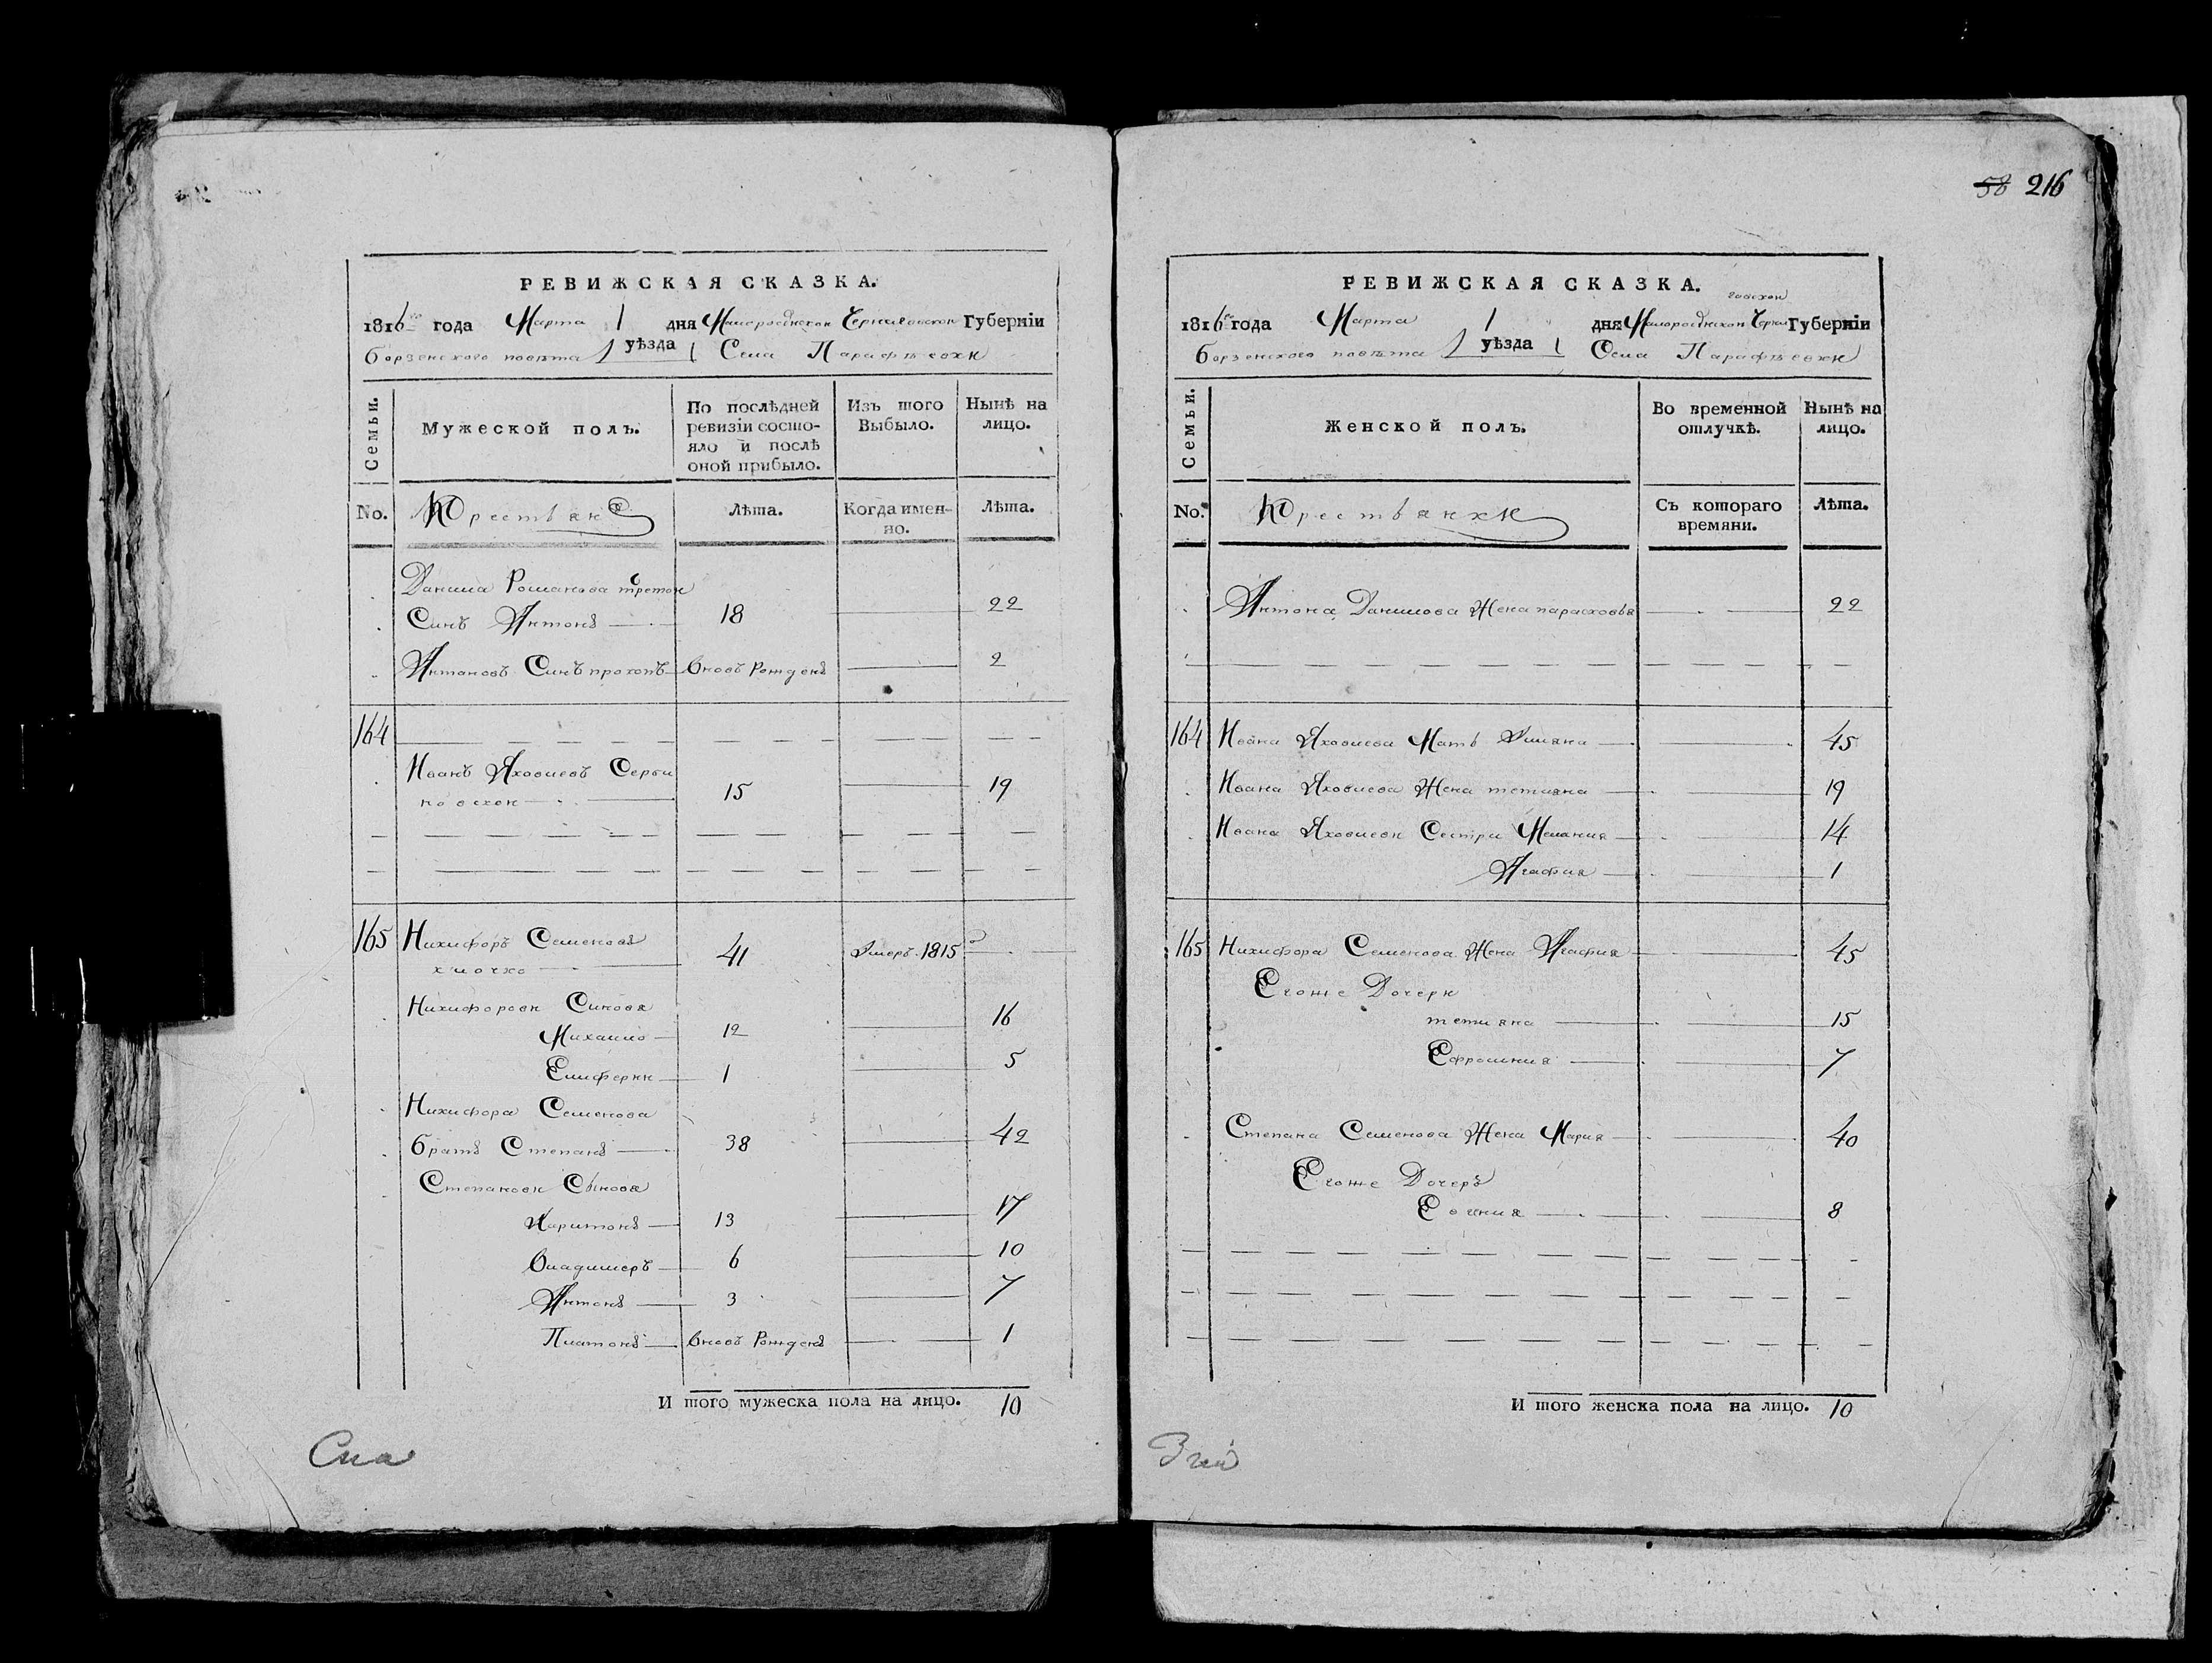 РЕВИЖСКАЯ СКАЗКА.
1816го года Марта 1 дня Малоросѣиской Черниговской Губерніи
борзенского повѣта уѣзда Села Парафѣевки
Семьи.
Мужеской полъ.
По послѣдней
ревизіи состо-
яло и послѣ
оной прибыло.
Изъ того
Выбыло.
Нынѣ на
лицо.
No.
Крестьяне
Лѣта.
Когда имен-
но.
Лѣта.
Данила Романова третой
Синъ Антонъ 18 22
Антоновъ Синъ прокопъ вновъ Рожденъ 2
164
Иванъ Яковлевъ
15 19
165 Никифоръ Семеновъ
клочко 41 Умеръ 1815 го
Никифорови Синовя
Михаило 12 16
Елиферии 1 5
Никифора Семенова
братъ Степанъ 38 42
Степанови Сынова
Харитонъ 13 17
Владимеръ 6 10
Антонъ 3 7
Платонъ вновъ Рожденъ 1
И того мужеска пола на лицо. 10
58 216
РЕВИЖСКАЯ СКАЗКА.
говской
1816го года Марта 1 дня Малоросѣиской Черни Губерніи
борзенского повѣта уѣзда Села Парафѣевки
Семьи.
Женской полъ.
Во временной
отлучкѣ.
Нынѣ на
лицо.
No.
Крестьянки
Съ котораго
времяни.
Лѣта.
Антона Данилова Жена парасковья 22
164 Ивана Яковлева Мать Уляна 45
Ивана Яковлева Жена тетияна 19
Ивана Яковлеви Сестри Мелания 14
Агафия 1
165 Никифора Семенова Жена Агафия 45
Егоже Дочери
тетияна 15
Ефросиния 7
Степана Семенова Жена Мария 40
Егоже Дочеръ
Евгения 8
И того женска пола на лицо. 10